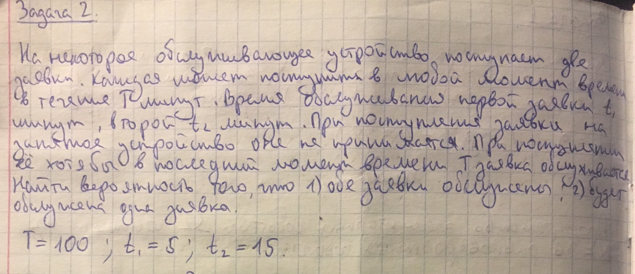 Задача 2.
На некоторое обслуживающее устройство поступает две
заявки. Каждая может поступить в любой момент времени
в течение T минут. Время обслуживания первой заявки t₁
минут, второй t₂ минут. При поступлении заявки на
занятое устройство она не принимается. При поступлении
её хотя бы в последний момент времени T заявка обслуживается.
Найти вероятность того, что 1) обе заявки обслужены; 2) будет
обслужена одна заявка.
T = 100 ; t₁ = 5 ; t₂ = 15.